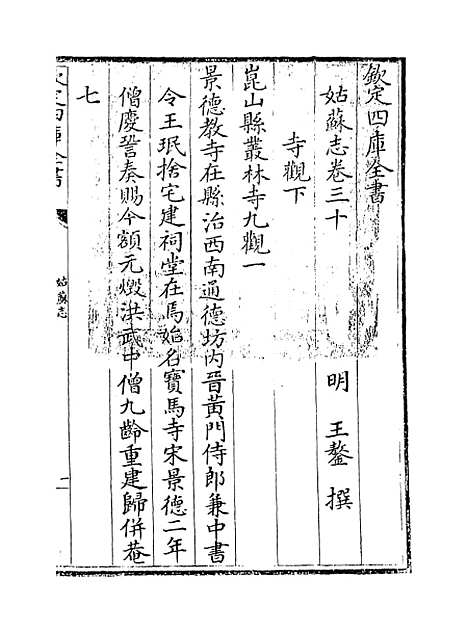 欽定四庫全書
姑蘇志卷三十
明 王鏊 撰
寺觀下
崑山縣叢林寺九觀一
景德教寺在縣治西南通德坊内晉黃門侍郎兼中書
令王珉捨宅建祠堂在馬始名寶馬寺宋景德二年
僧慶誓奏賜今額元燬洪武中僧九齡重建歸併菴
七
欽定四庫全書
姑蘇志
一